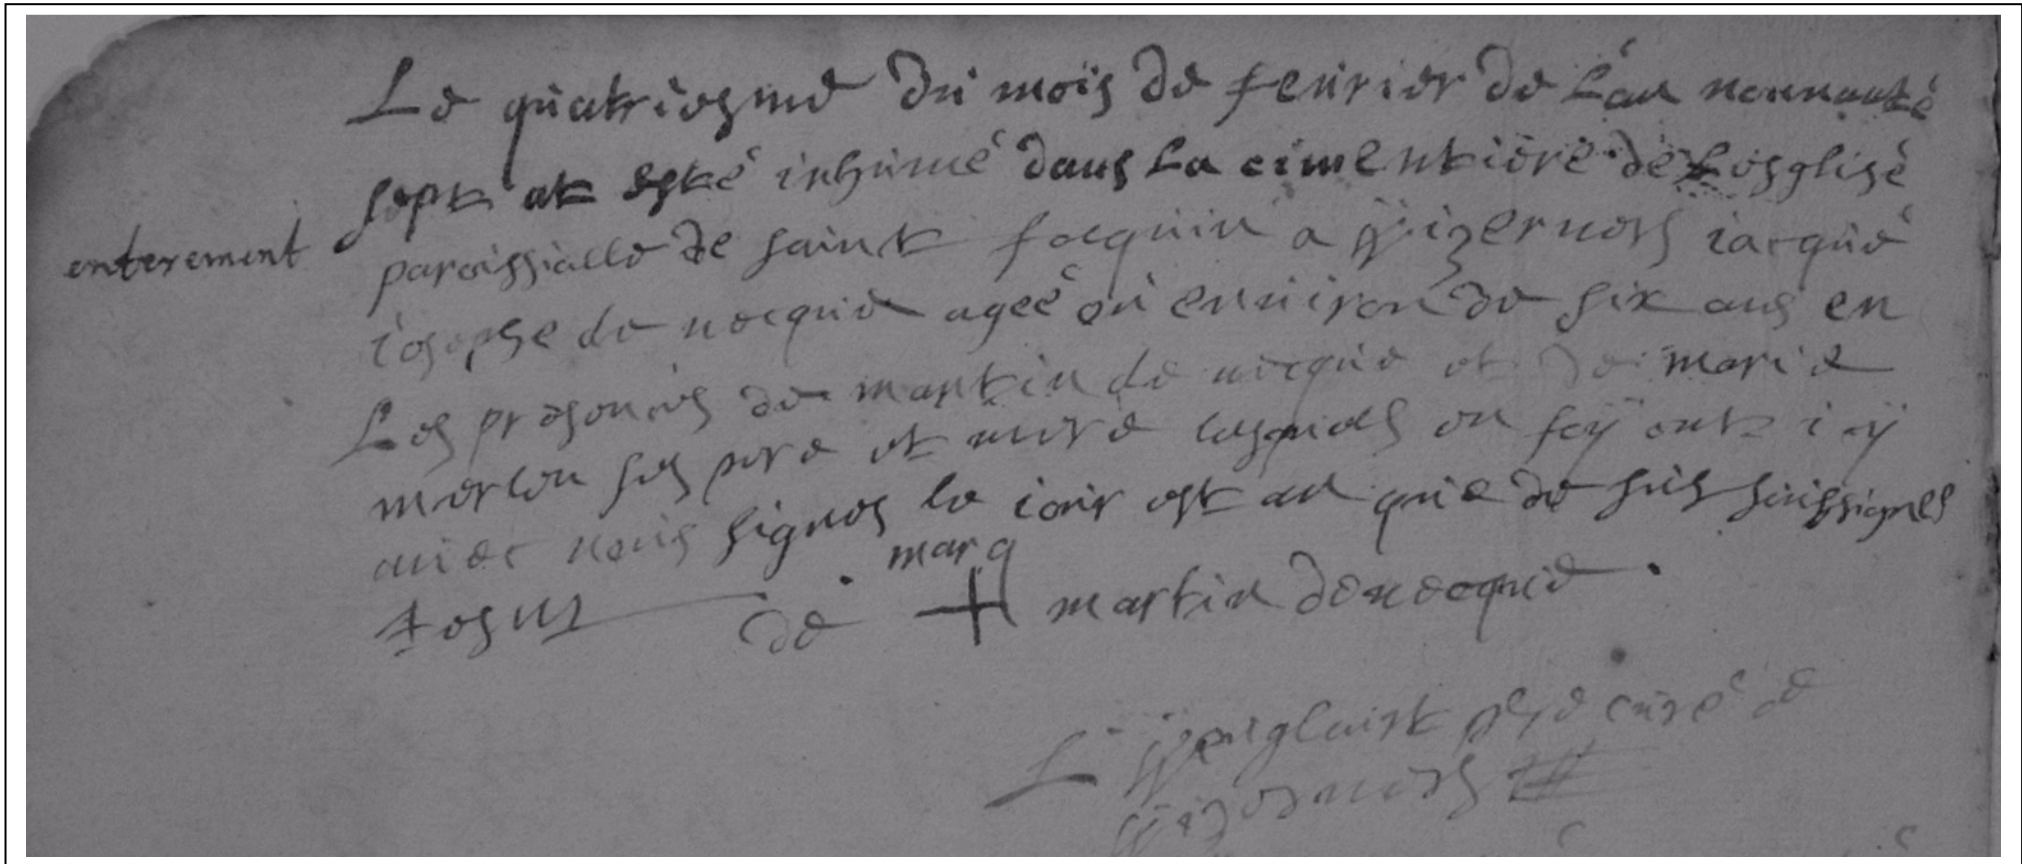 Le quatriesme du mois de feurier de L'an nonnante
enterement
sept at esté inhumé dans La cimentiere de L'esglise
paroissialle de saint focquin a Wizernes iacque
iosephe de necque ageé ou enuiron de six ans en
Les presences de martin de necque et de marie
merlen ses pere et mere lesquels en foÿ ont icÿ
auiec nous signes le iour est an que de sus soussignes
tesm
marq
de + martin denecque
L W pbre curé de
Wizernes